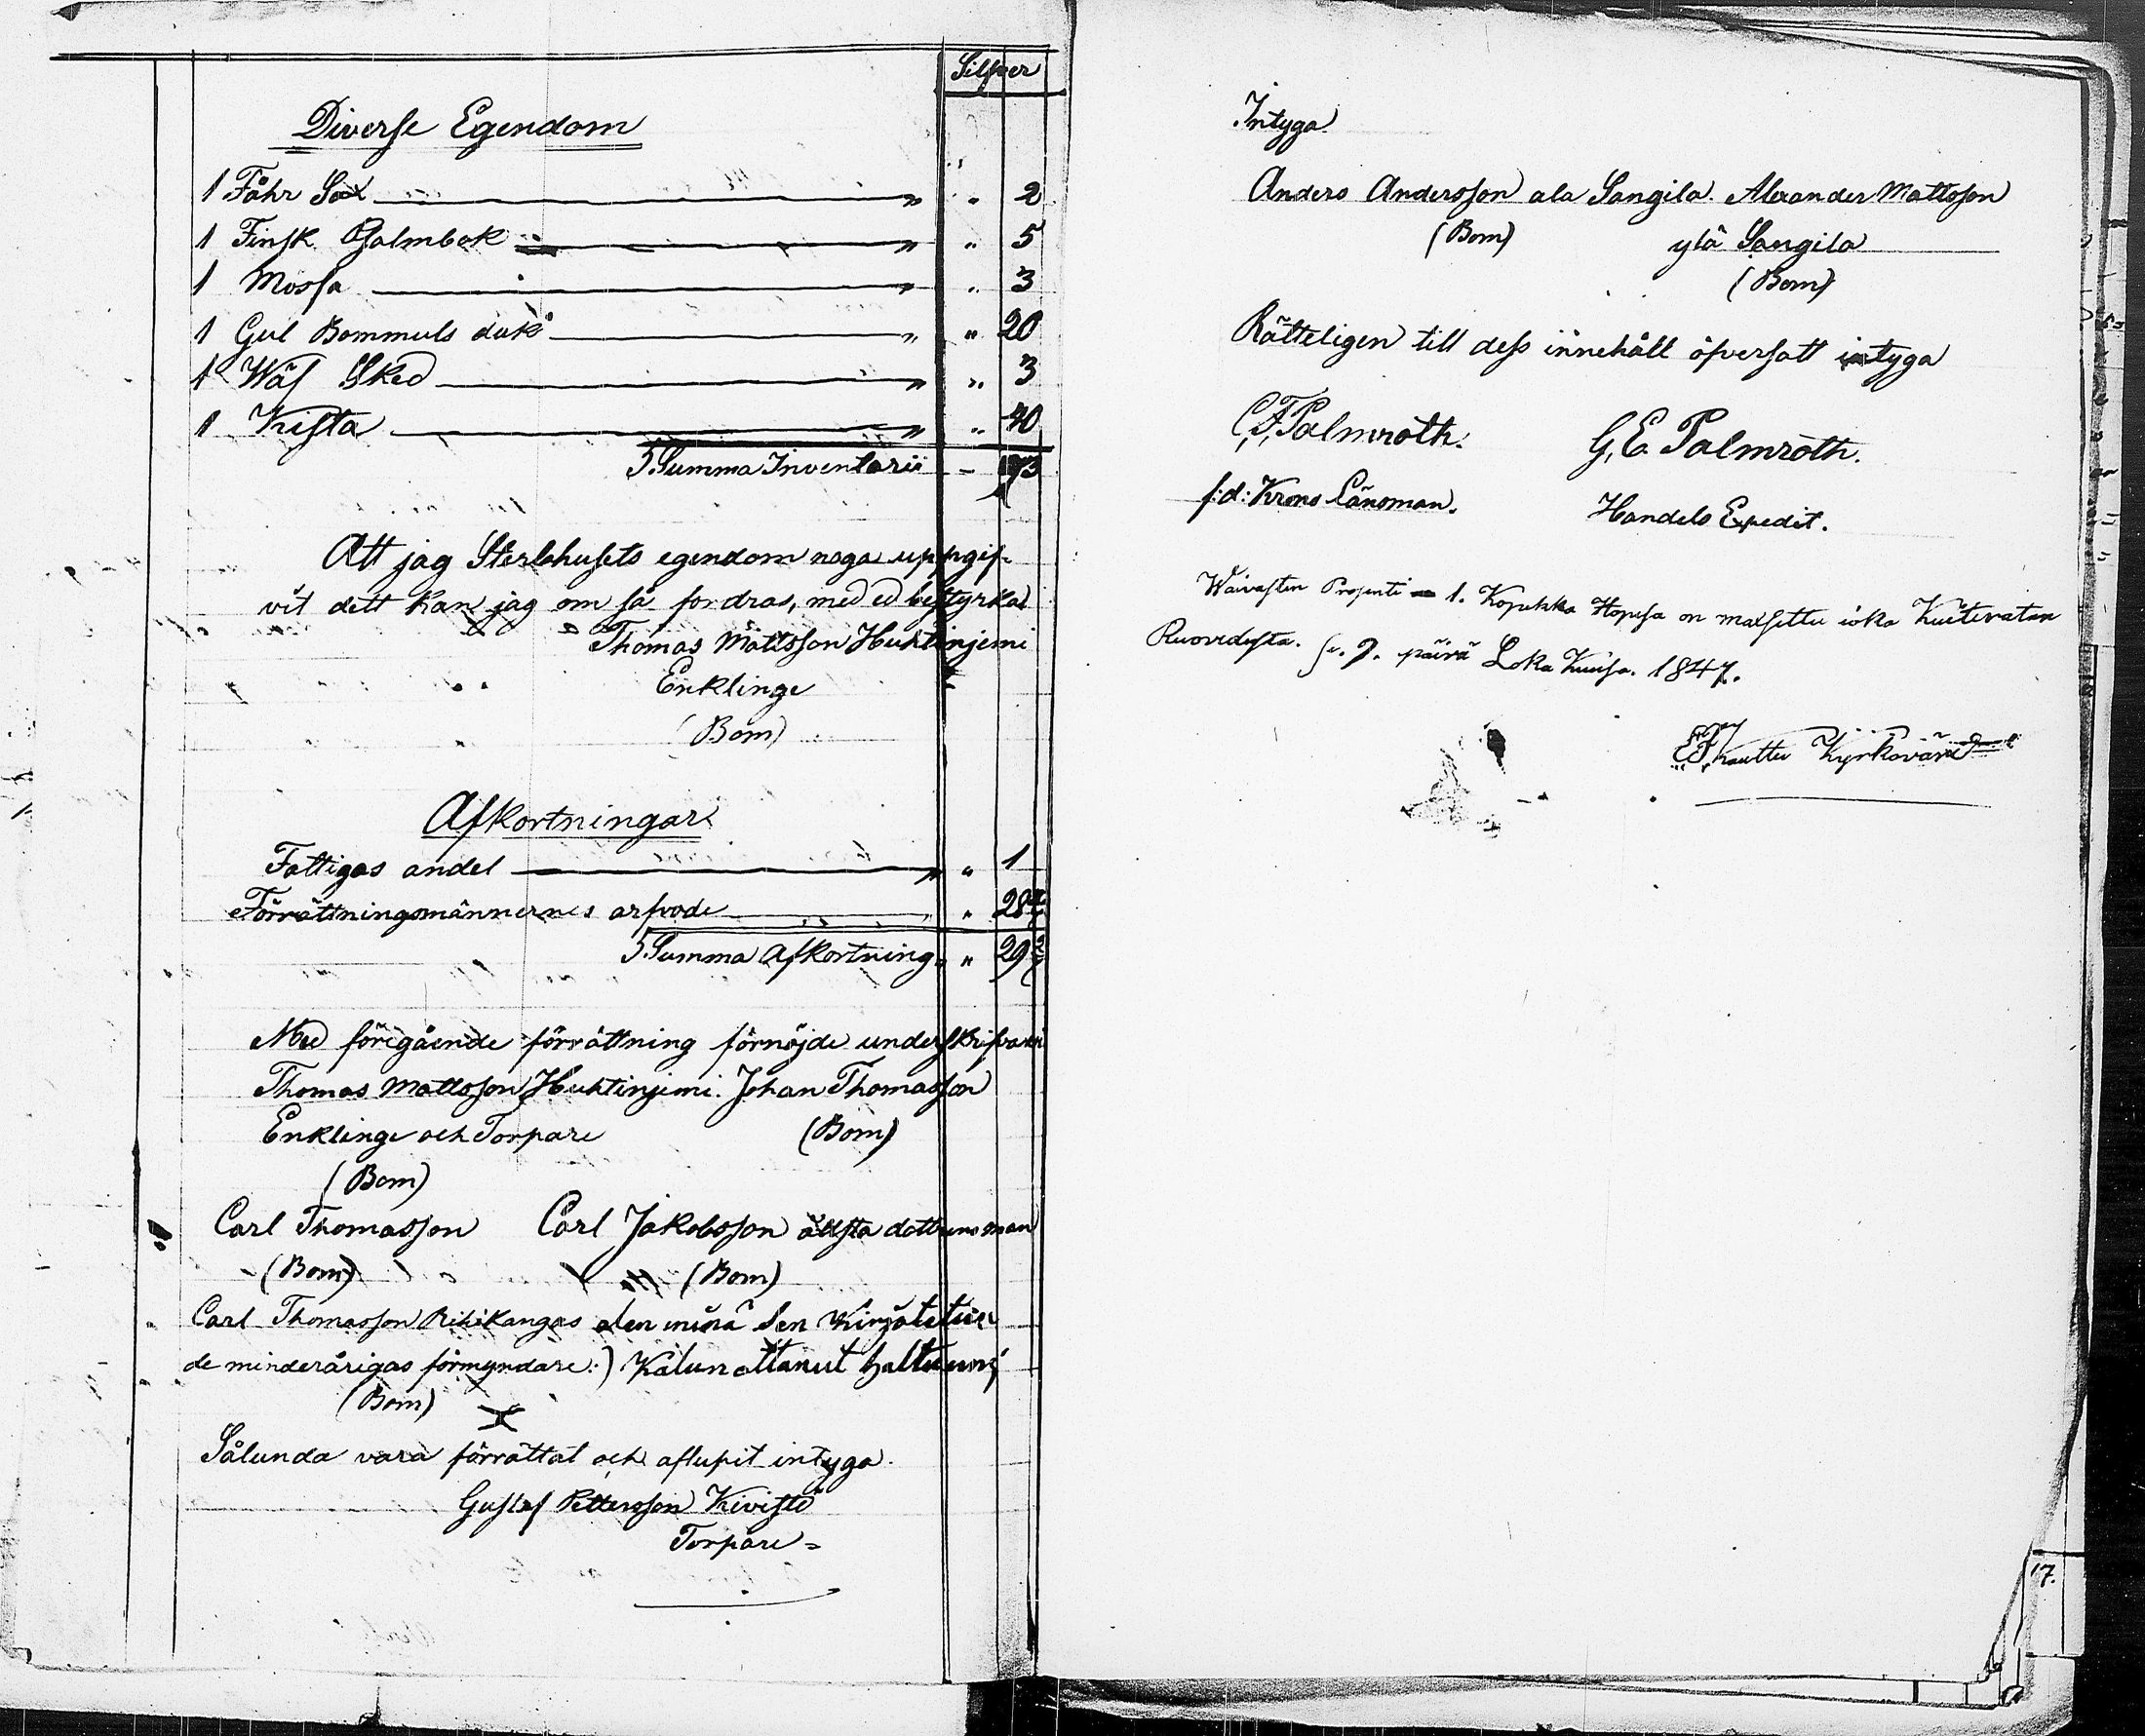 Silfver
Diverse Egendom
1 Fåhr Sax " " 2
1 Finsk Psalmbok " " 5
1 Mössa " " 3
1 Gul Bommuls duk " " 20
1 Wäf Sked " " 3
1 Kista " " 40
S Summa Inventarii - 73
Att jag Sterbhusets egendom noga uppgif-
vit dett kan jag om så fordras, med ed bestyrka
Thomas Mattsson Huhtinjemi
Enklinge
(Bom)
Afkortningar
Fattigas andel " " 1
Förrättningsmännernes arfvode " 28 2/7
S Summa Afkortning " " 29 2/7
Med föregående förrättning förnöjde underskrifvare
Thomas Mattsson Huhtinjemi. Johan Thomasson
Enklinge och Torpare (Bom)
(Bom)
Carl Thomasson Carl Jakobsson äldsta dottrens man
(Bom) (Bom)
Carl Thomasson Riihikangas
de minderårigas förmyndare:)
(Bom)
Sålunda vara förrättat och aflupit intyga.
Gustaf Pettersson Kivistö
Torpare =
Intyga
Anders Andersson ala Sangila. Alexander Mattsson
(Bom) ylä Sangila
(Bom)
Rätteligen till dess innehåll öfversatt intyga
C.F. Palmroth. G.E. Palmroth.
f:d: Krono Länsman. Handels Expedit.
Waivasten Prosenti 1. Kopekka Hopesa on maksettu joka Kuitetatan
Ruovedesta. se. 9. päivä Loka Kuusa. 1847.
Kyrkovärd
17.